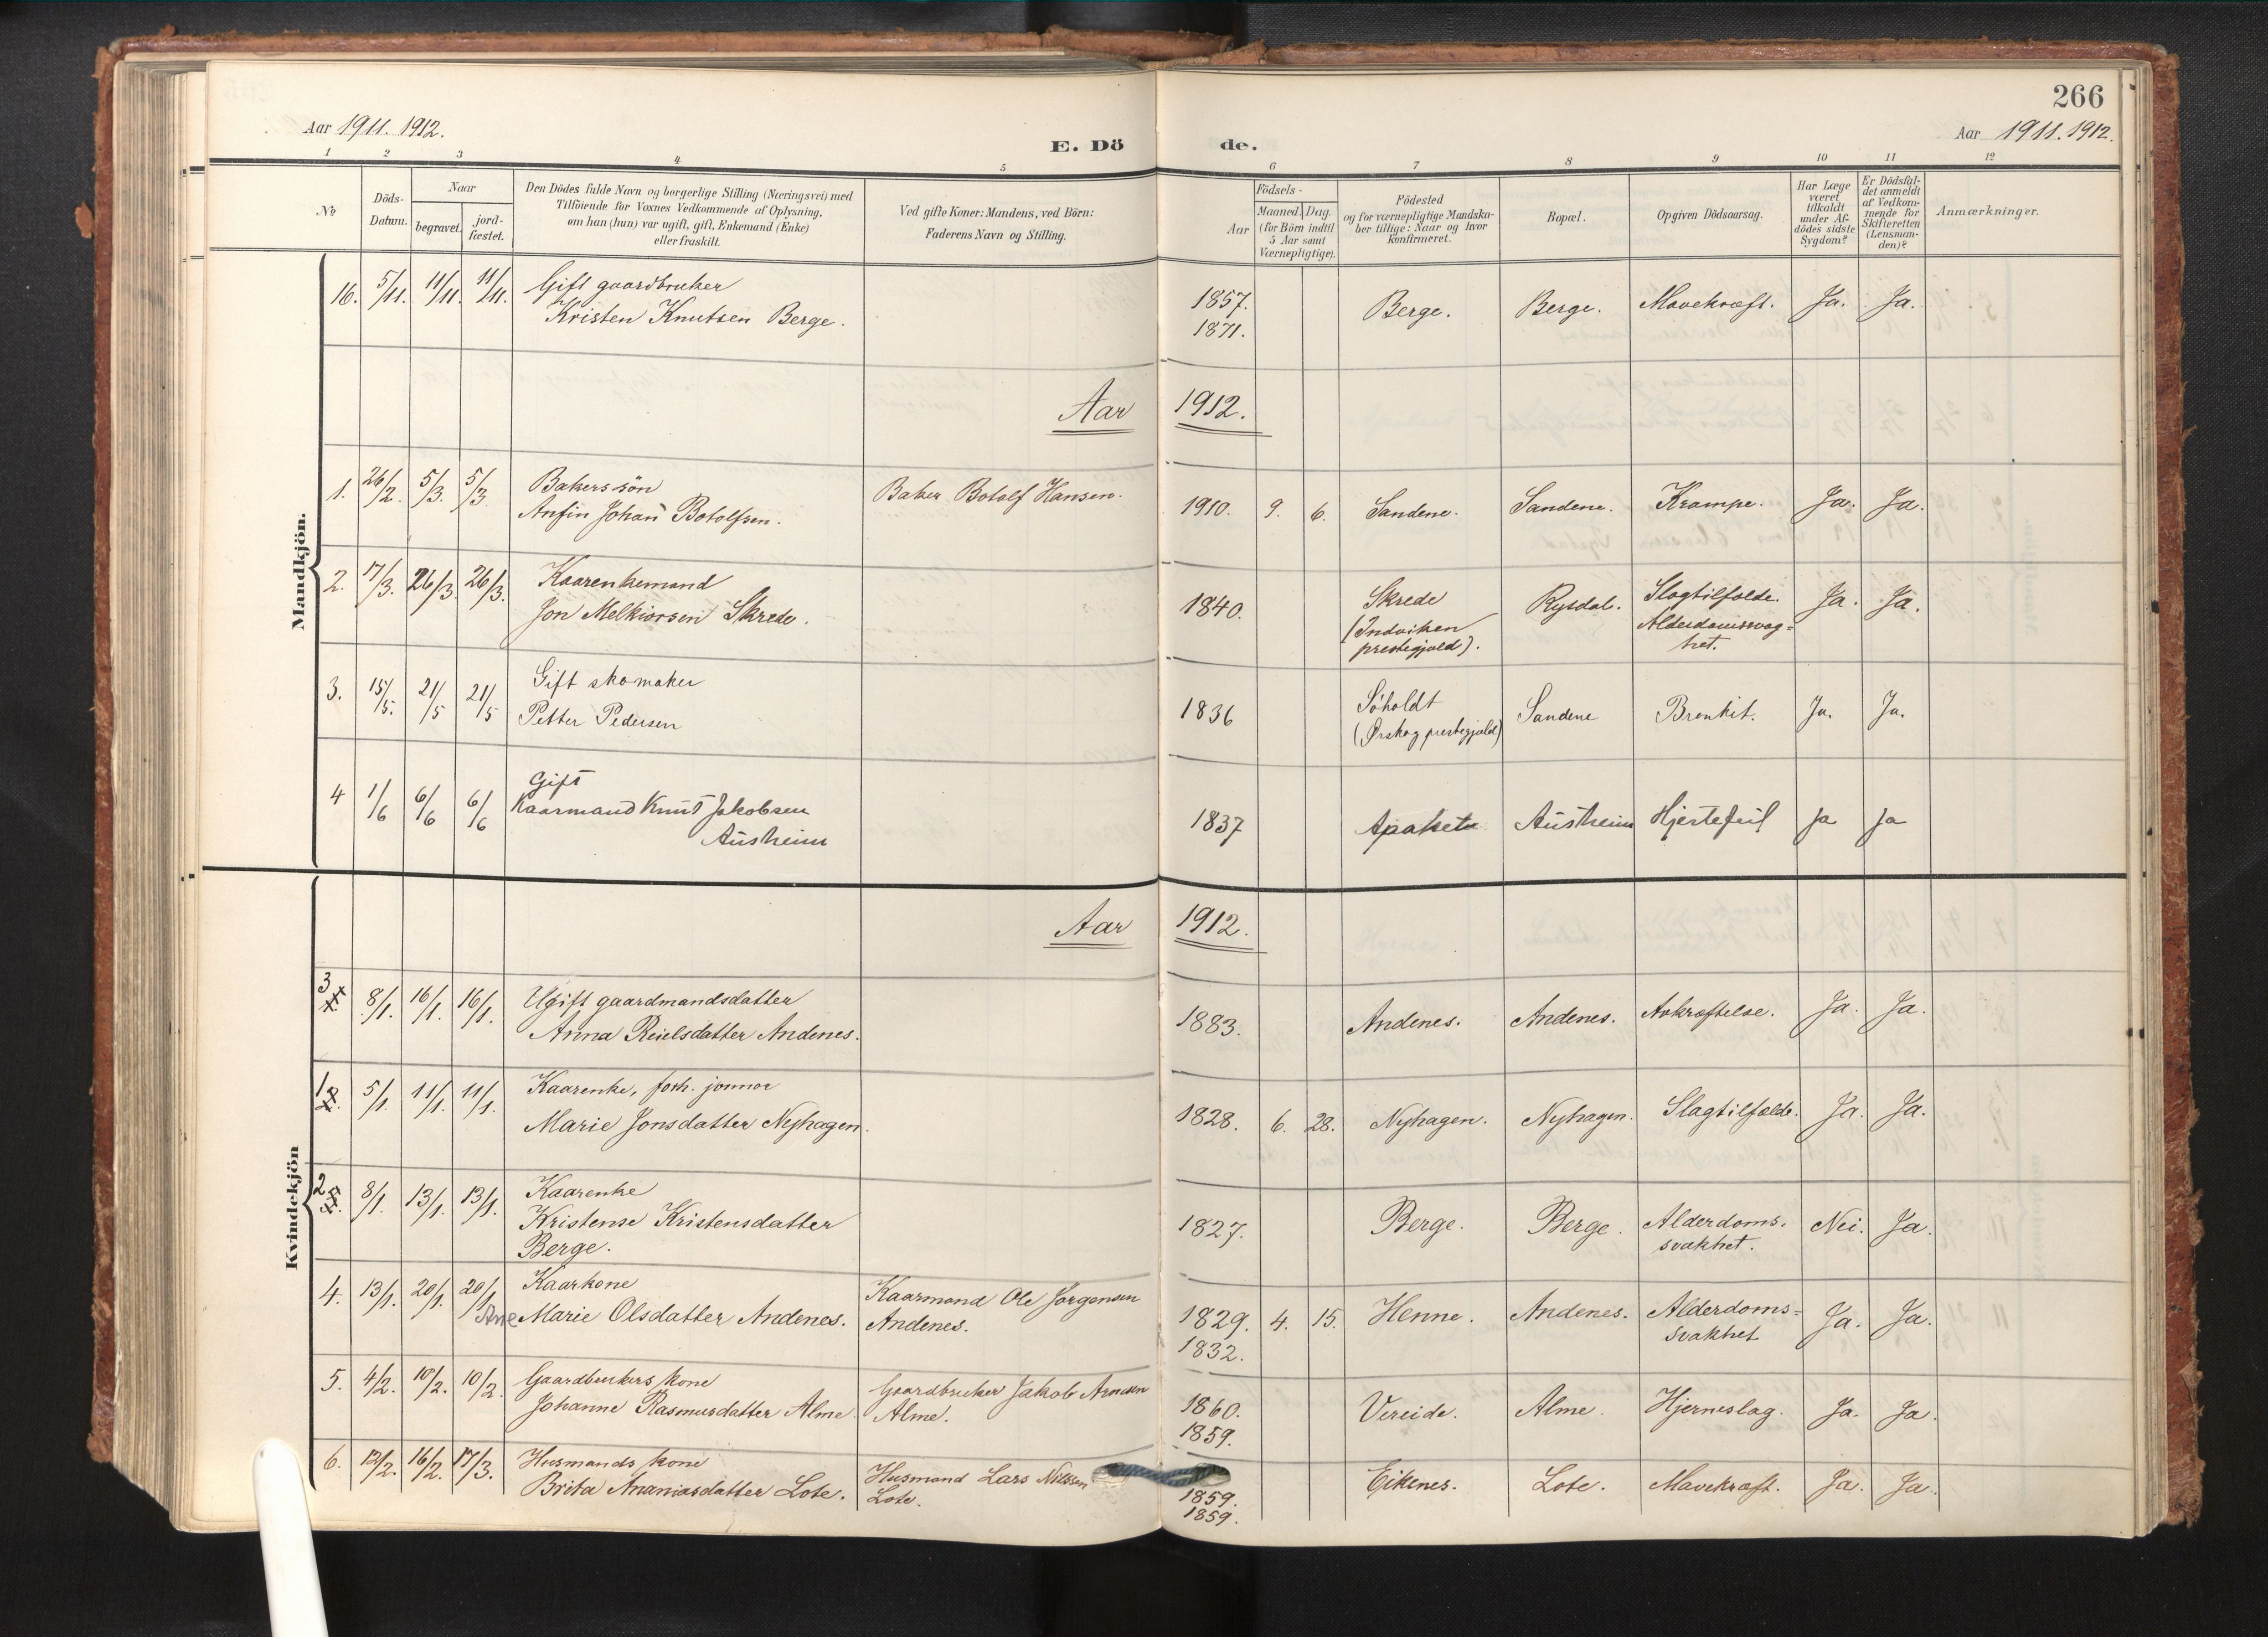 266
Aar 1911. 1912.
Aar 1911. 1912.
E. Dö
de.
1 2 3 4 5 6 7 8 9 10 11 12
No
Döds-
Datum.
Naar
begravet.
jord-
fæstet.
Den Dödes fulde Navn og borgerlige Stilling (Næringsvei) med
Tilföiende for Voxnes Vedkommende af Oplysning,
om han (hun) var ugift, gift, Enkemand (Enke)
eller fraskilt.
Ved gifte Koner: Mandens, ved Börn:
Faderens Navn og Stilling.
Födsels-
Aar
Maaned. Dag.
(for Börn indtil
5 Aar samt
Værnepligtige).
Födested
og for værnepligtige Mandska-
ber tillige: Naar og hvor
Konfirmeret.
Bopæl.
Opgiven Dödsaarsag.
Har Læge
været
tilkaldt
under Af-
dödes sidste
Sygdom?
Er Dödsfal-
det anmeldt
af Vedkom-
mende for
Skifteretten
(Lensman-
den)?
Anmærkninger.
Mandkjön.
16. 5/11. 11/11. 11/11. Gift gaardbruker
Kristen Knutsen Berge.
1857. Berge. Berge. Mavekræft. Ja. Ja.
1871.
Aar 1912.
1. 26/2. 5/3. 5/3. Bakers sön
Anfin Johan Botolfsen.
Baker Botolf Hansen.
1910. 9. 6. Sandene. Sandene. Krampe. Ja. Ja.
2. 17/3. 26/3. 26/3. Kaarenkemand
Jon Melkiorsen Skrede.
1840. Skrede
(Indviken
prestegjæld).
Rysdal. Slagtilfælde.
Alderdomssvag=
het.
Ja. Ja.
3. 15/5. 21/5 21/5 Gift skomaker
Petter Pedersen
1836 Søholdt
(Ørskog prestegjæld)
Sandene Bronkit. Ja. Ja.
4 1/6 6/6 6/6 Gift
Kaarmand Knut Jakobsen
Austheim
1837 Apaket Austheim Hjertefeil Ja Ja
Kvindekjön
Aar 1912.
3 8/1. 16/1. 16/1. Ugift gaardmandsdatter
Anna Reielsdatter Andenes.
1883. Andenes. Andenes. Avkræftelse. Ja. Ja.
1 5/1. 11/1. 11/1. Kaarenke, forh. jormor
Marie Jonsdatter Nyhagen.
1828. 6. 28. Nyhagen. Nyhagen. Slagtilfælde. Ja. Ja.
2 8/1. 13/1. 13/1. Kaarenke
Kristense Kristensdatter
Berge.
1827. Berge. Berge. Alderdoms.
svakhet.
Nei. Ja.
4. 13/1. 20/1. 20/1 Kaarkone
Ane Marie Olsdatter Andenes.
Kaarmand Ole Jørgensen
Andenes.
1829. 4. 15. Henne. Andenes. Alderdoms=
svakhet
Ja. Ja.
1832.
5. 4/2. 10/2. 10/2. Gaardbrukers kone
Johanne Rasmusdatter Alme.
Gaardbruker Jakob Arnesen
Alme.
1860. Vereide. Alme. Hjerneslag. Ja. Ja.
1859.
6. 12/2. 16/2. 17/3. Husmands kone
Brita Ananiasdatter Lote.
Husmand Lars Nilssen
Lote.
1859. Eikenes. Lote. Mavekræft. Ja. Ja.
1859.